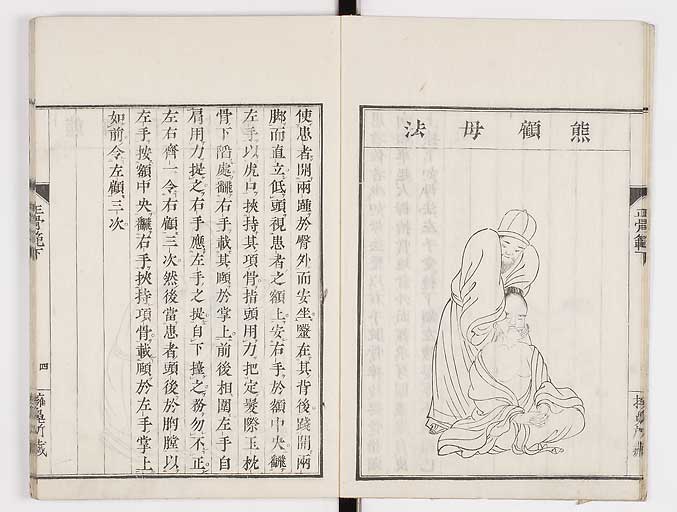 熊顧母法
使患者開兩踵於臀外而安坐毉在其背後踐開兩
脚而直立低頭視患者之額上安右手於額中央飜
左手以虎口挾持其項骨指頭用力把定髮際玉枕
骨下陷處飜右手載其頤於掌上前後相圍左手自
肩用力提之右手應左手之提自下擡之務勿不正
左右齊一令右顧三次然後當患者頭後於胸膛以
左手按額中央飜右手挾持項骨載頤於左手掌上
如前令左顧三次
正骨範下
四